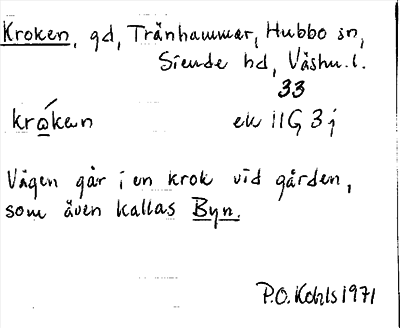 Kroken, gd, Trånhammar, Hubbo sn,
Siende hd, Västm. l.
33
kråkan ek 11G 3j
Vägen går i en krok vid gården,
som även kallas Byn.
P.O. Kohls 1971